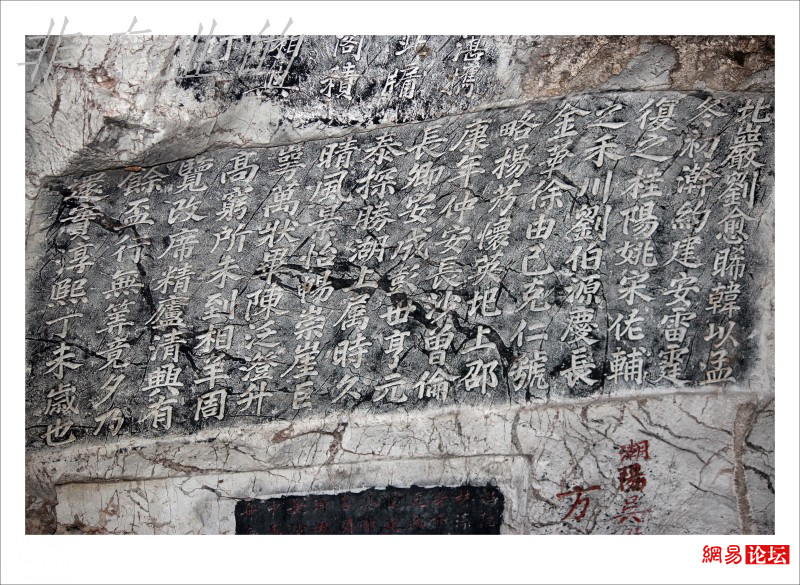 閣積
牖
北巖劉愈睎韓以孟
冬初澣約建安雷霆
復之桂陽姚宋佐輔
之禾川劉伯源慶長
金華徐由巳克仁號
略楊芳懷英地上邵
康年仲安長沙曾倫
長卿安成彭世亨元
泰探勝湖上属時久
晴風景怡暢崇崖巨
壑萬狀畢陳泛澄升
高窮所未到相羊周
覽改席精廬清興有
餘盃行無筭竟夕乃
還實淳熙丁未歲也
潮陽吳
方
網易论坛